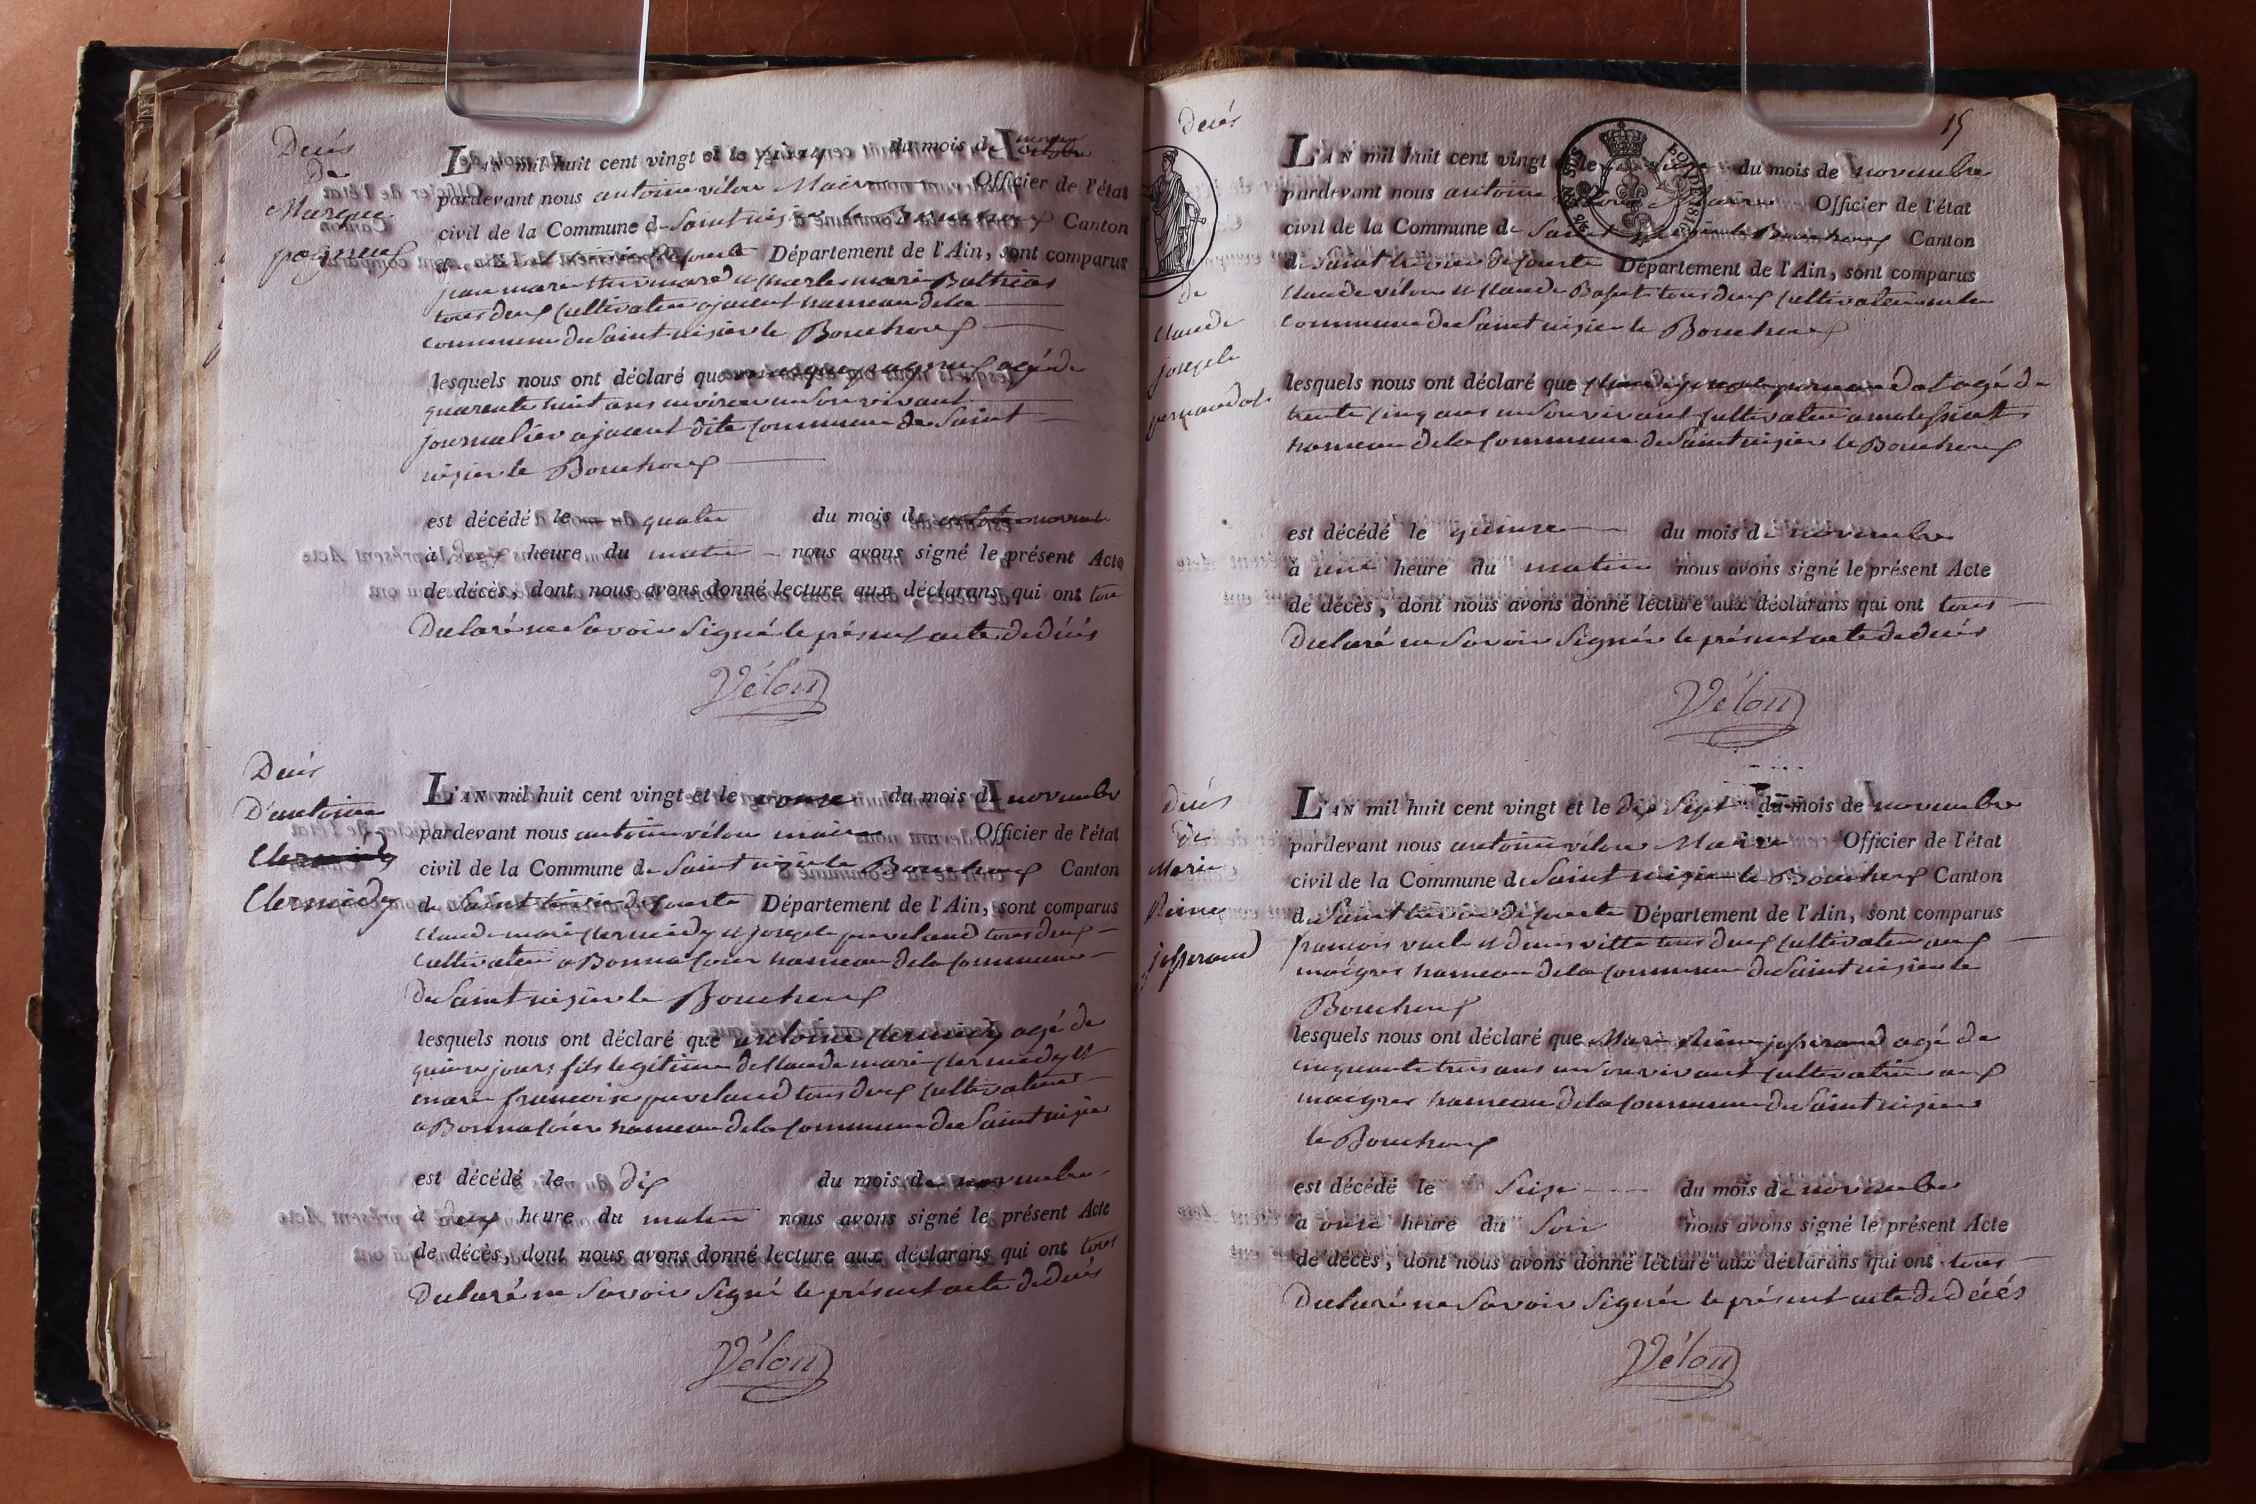 Décès
de
Marque
pagneux
L'AN mil huit cent vingt et le du mois de novembre
pardevant nous antoine vélon Maire Officier de l'état
civil de la Commune de Saint nizier le Bouchoux Canton
de Département de l'Ain, sont comparus
tous deux cultivateur ajacent hameau de la
commune de Saint nizier le Bouchoux
lesquels nous ont déclaré que agé de
quarente huit ans environ en Son vivant
journalier ajacent dite commune de Saint
nizier le Bouchoux
est décédé le quatre du mois de
à heure du matin nous avons signé le présent Acte
de décès, dont nous avons donné lecture aux déclarans qui ont tou
Déclaré ne Savoir Signé le présent acte de décès
Vélon
Décès
D'antoine
Clermidy
L'AN mil huit cent vingt et le onze du mois de novembre
pardevant nous antoine vélon maire Officier de l'état
civil de la Commune de Saint nizier le Bouchoux Canton
de Saint trivier de courte Département de l'Ain, sont comparus
Claude marie Clermidy et joseph tous deux
Cultivateur a hameau de la commune
De Saint nizier le Bouchoux
lesquels nous ont déclaré que antoine Clermidy agé de
quinze jours fils legitime de Claude marie Clermidy et
marie francoise tous deux cultivateur
a hameau de la commune de Saint nizier
est décédé le dix du mois de novembre
à deux heure du matin nous avons signé le présent Acte
de décès, dont nous avons donné lecture aux déclarans qui ont tous
Déclaré ne Savoir Signé le présent acte de décès
Vélon
15
décès
de
Claude
joseph
L'AN mil huit cent vingt et le du mois de novembre
pardevant nous antoine vélon Maire Officier de l'état
civil de la Commune de Saint nizier le Bouchoux Canton
de Saint trivier de courte Département de l'Ain, sont comparus
Claude vélon et Claude tous deux Cultivateur
commune de Saint nizier le Bouchoux
lesquels nous ont déclaré que Claude joseph agé de
trente cinq ans en Son vivant cultivateur a
hameau de la commune de Saint nizier le Bouchoux
est décédé le quinze du mois de novembre
à une heure du matin nous avons signé le présent Acte
de décès, dont nous avons donné lecture aux déclarans qui ont tous
Déclaré ne Savoir Signér le présent acte de décès
Vélon
décès
de
Marie
Reine
josserand
L'AN mil huit cent vingt et le dix Sept du mois de novembre
pardevant nous antoine vélon Maire Officier de l'état
civil de la Commune de Saint nizier le Bouchoux Canton
de Saint trivier de courte Département de l'Ain, sont comparus
francois et denis tous deux cultivateur aux
hameau de la commune de Saint nizier le
Bouchoux
lesquels nous ont déclaré que Marie Reine josserand agé de
cinquante trois ans en Son vivant cultivatrice aux
hameau de la commune de Saint nizier
le Bouchoux
est décédé le Seize du mois de novembre
à onze heure du Soir nous avons signé le présent Acte
de décès, dont nous avons donné lecture aux déclarans qui ont tous
Déclaré ne Savoir Signér le présent acte de décès
Vélon